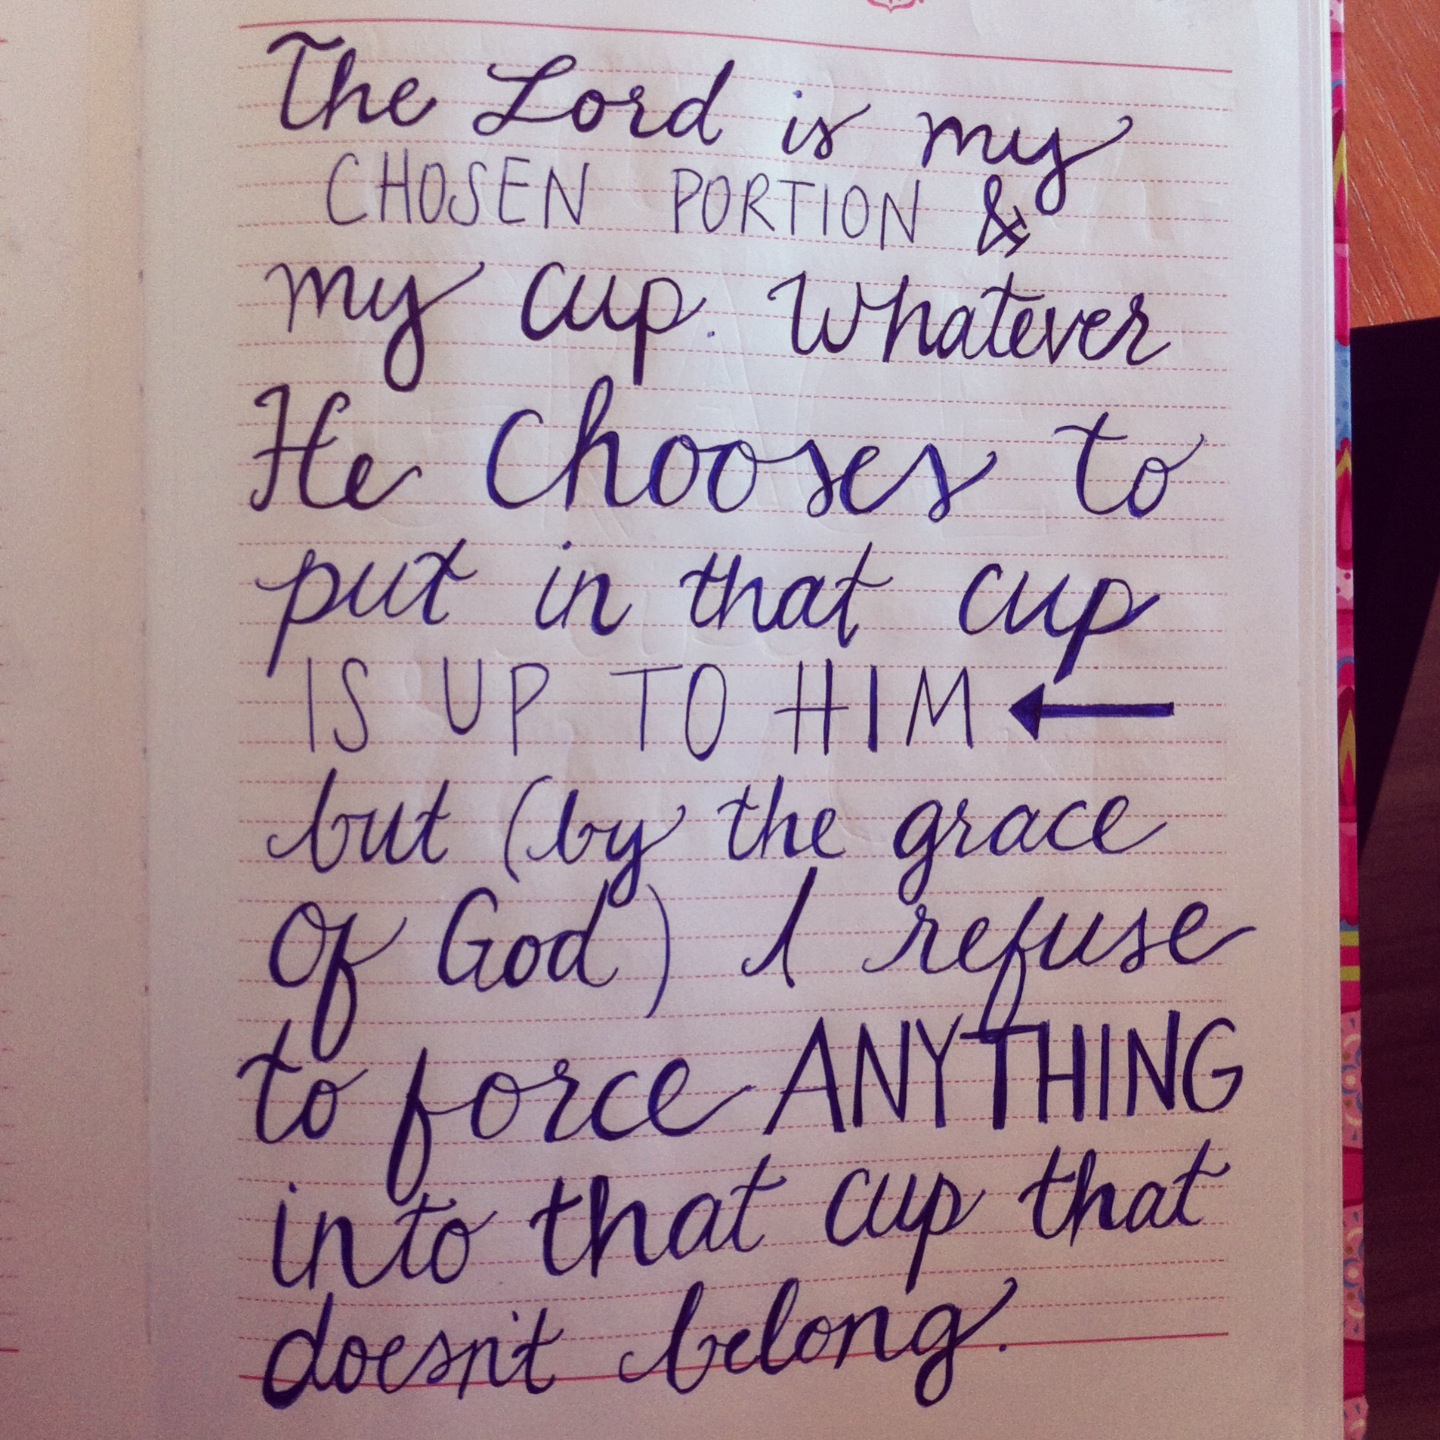 The Lord is my
CHOSEN PORTION &
my cup. Whatever
He chooses to
put in that cup
IS UP TO HIM ←
but (by the grace
of God) I refuse
to force ANYTHING
into that cup that
doesn't belong.